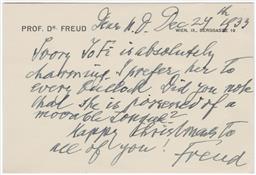 Dear M.D. Dec 24th 1933
PROF. DR. FREUD WIEN, IX., BERGGASSE 19
Ivory Jofi is absolutely
charming. I prefer her to
every Bullock. Did you note
that she is possessed of a
moveable tongue?
Happy Christmas to
all of you!
Freud